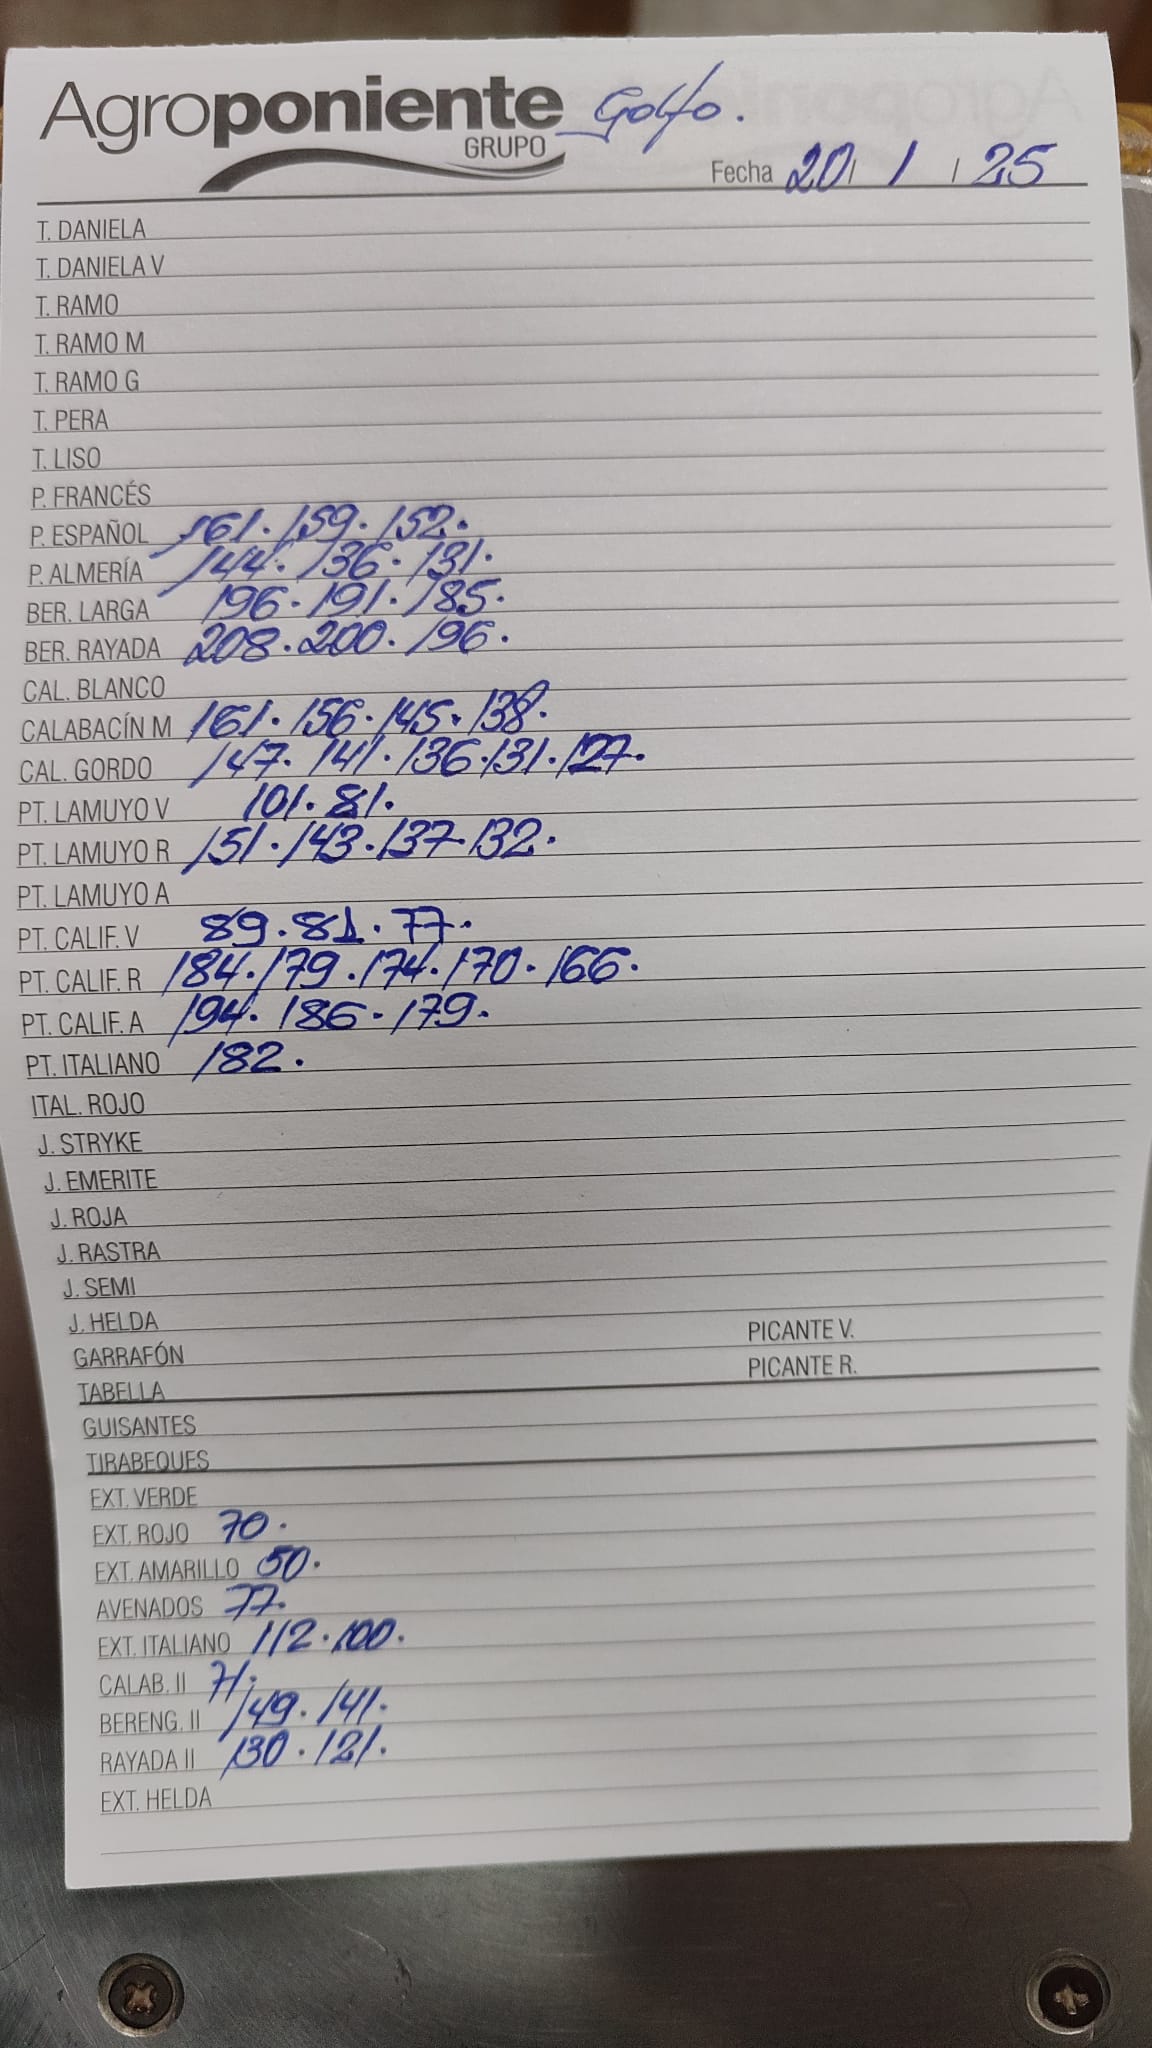 Agroponiente Golfo.
GRUPO
Fecha 20 / 1 / 25
T. DANIELA
T. DANIELA V
T. RAMO
T. RAMO M
T. RAMO G
T. PERA
T. LISO
P. FRANCÉS
P. ESPAÑOL 161. 159. 152.
P. ALMERÍA 144. 136. 131.
BER. LARGA 196. 191. 185.
BER. RAYADA 208. 200. 196.
CAL. BLANCO
CALABACÍN M 161. 156. 145. 138.
CAL. GORDO 147. 141. 136. 131. 127.
PT. LAMUYO V 101. 81.
PT. LAMUYO R 151. 143. 137. 132.
PT. LAMUYO A
PT. CALIF. V 89. 81. 77.
PT. CALIF. R 184. 179. 174. 170. 166.
PT. CALIF. A 194. 186. 179.
PT. ITALIANO 182.
ITAL. ROJO
J. STRYKE
J. EMERITE
J. ROJA
J. RASTRA
J. SEMI
J. HELDA
PICANTE V.
GARRAFÓN
PICANTE R.
TABELLA
GUISANTES
TIRABEQUES
EXT. VERDE
EXT. ROJO 70.
EXT. AMARILLO 50.
AVENADOS 77.
EXT. ITALIANO 112. 100.
CALAB. II 71.
BERENG. II 149. 141.
RAYADA II 130. 121.
EXT. HELDA